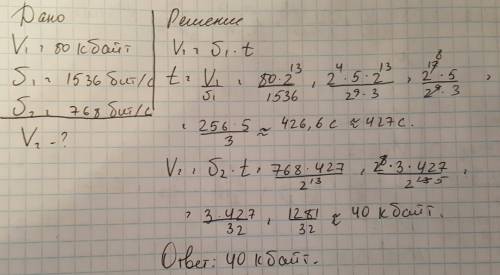 Дано
V₁ = 80 кбайт
δ₁ = 1536 бит/с
δ₂ = 768 бит/с
V₂ - ?
Решение
V₁ = δ₁ · t
t = V₁/δ₁ = 80·2¹³/1536 = 2⁴·5·2¹³/2⁹·3 = 2¹⁷ ⁸·5/2⁹·3 =
= 256·5/3 ≈ 426,6 с ≈ 427 с.
V₂ = δ₂ · t = 768·427/2¹³ = 2⁸·3·427/2¹³ ⁵ =
= 3·427/32 = 1281/32 ≈ 40 кбайт.
Ответ: 40 кбайт.